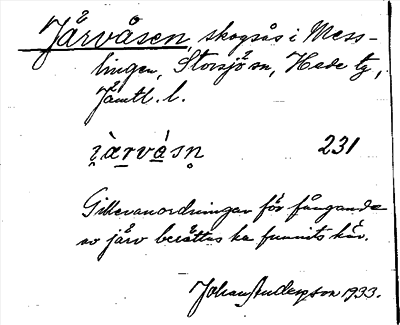 Jårvåsen, skogsås i Mess-
lingen, Storsjö sn, Hede tg,
Jämtl. l.
i̯àrvásn̥ 231
Gillevanordningar för fångande
av järv berättas ha funnits här.
Johan Anderson 1933.